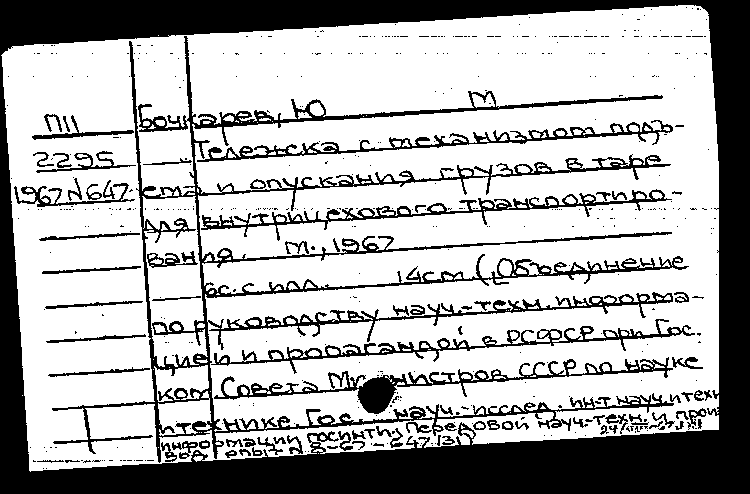 П11 Бочкарев, Ю М
2295 Тележска с механизмом подъ-
1967 N 647 ема и опускания грузов в таре
для внутрицехового транспортиро-
вания. М., 1967
6с. с илл. 14см (Объединение
по руководству науч.-техн. информа-
цией и пропагандой в РСФСР при Гос.
ком. Совета Министров СССР по науке
и технике. Гос. науч.-исслед. ин-т науч. и техн
информации ГОСИНТИ. Передовой науч.-техн. и произ
вод. опыт N 8-67-647/31)